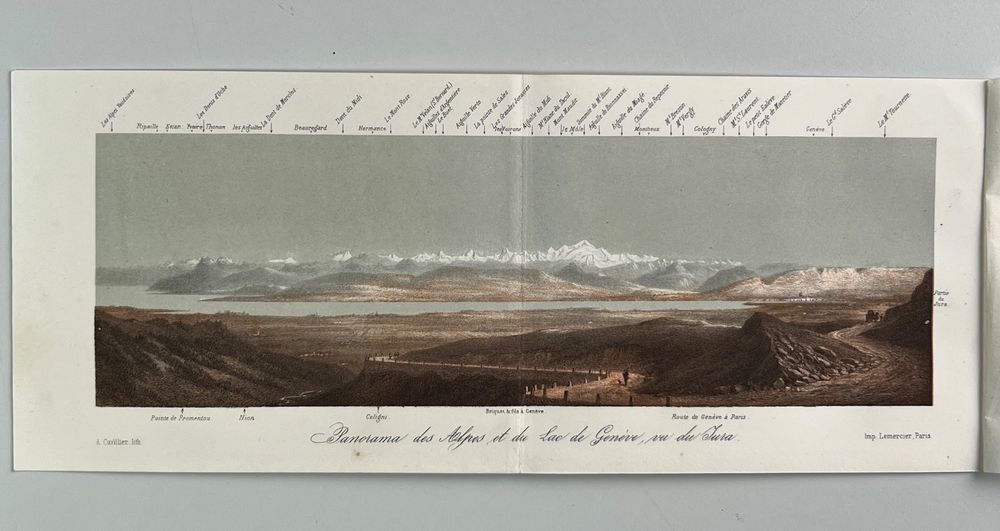 Les Alpes Vaudoises
Ripaille
Sezan
Yvoire
Thonon
Les Dents d'Oche
les Aiguilles
La Dent de Morcles
Beauregard
Dent du Midi
Hermance
Le Mont Rose
Le Mt Velan (St Bernard.)
Aiguilles d'Argentière
Le Buet
Aiguille Verte
La pointe de Sales
Les Grandes Jorasses
les Voirons
Aiguille du Midi
Mt Blanc du Tacul
Mont Maudit
le Môle
Sommet du Mt Blanc
Aiguille de Bionnassay
Aiguille de Miage
Monthoux
Chaine du Reposoir
Mt Brezon
Mt Vergy
Cologny
Chaine des Aravis
Mt St Laurent
Le petit Salève
Gorge de Monetier
Genève
Le Gd Salève
Le Mt Tournette
Partie
du
Jura.
Pointe de Promentou
Nion
Celigni
Briquet & fils à Genève.
Route de Genève à Paris.
A. Cuvillier, lith.
Panorama des Alpes et du Lac de Genève, vu du Jura.
Imp. Lemercier, Paris.